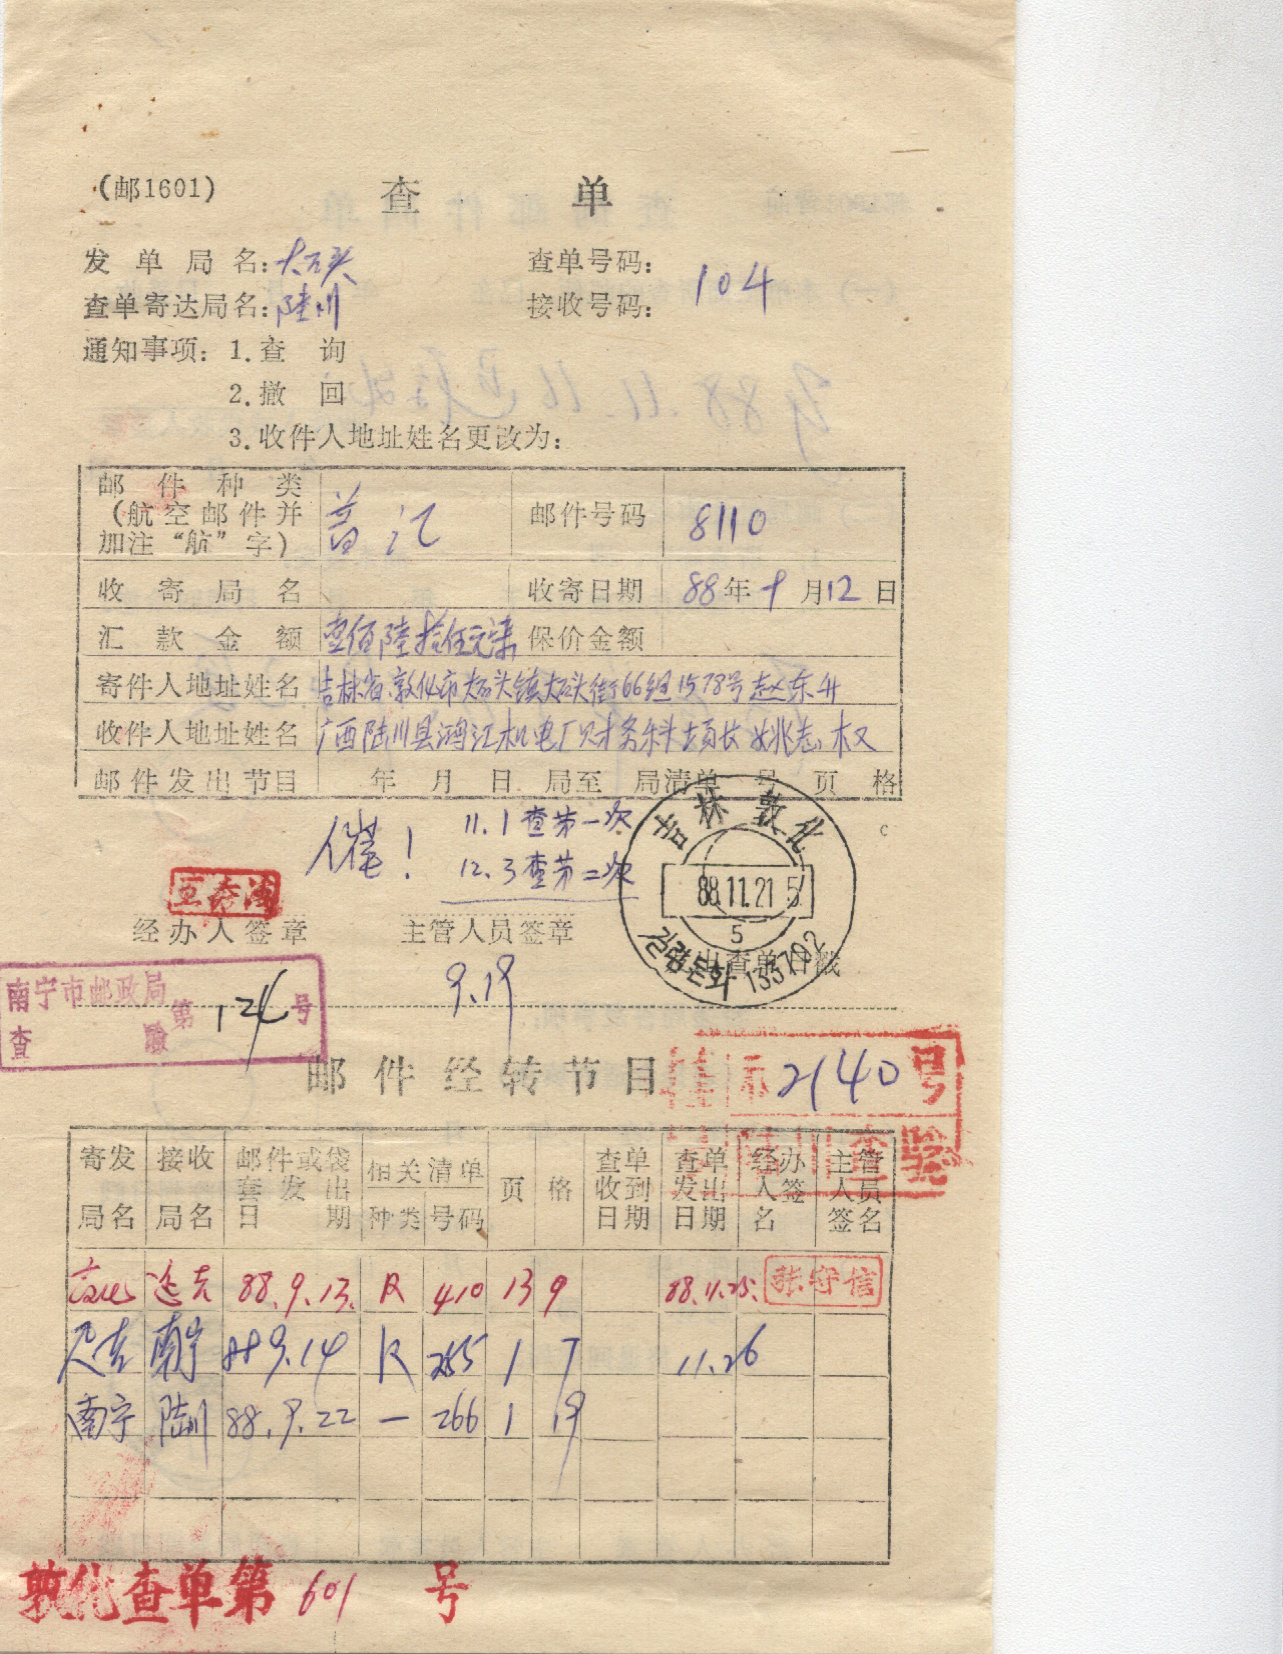 (邮1601)
查 单
发单局名：大石头 查单号码：104
查单寄达局名：陆川 接收号码：
通知事项：1.查 询
2.撤 回
3.收件人地址姓名更改为：
邮件种类（航空邮件并加注“航”字） 普汇 邮件号码 8110
收寄局名 收寄日期 88年9月12日
汇款金额 壹佰陆拾伍元 保价金额
寄件人地址姓名 吉林省敦化市大石头镇大石头街66组1578号赵东升
收件人地址姓名 广西陆川县鸿江机电厂财务科 姚志权
邮件发出节目 年 月 日 局至 局清单 号 页 格
催！ 11.1查第一次
12.3查第二次
吉林 敦化
88.11.21 5
5
길림돈화 133702
经办人签章 主管人员签章 出查单日戳
南宁市邮政局
查验 第124号
9.19
邮件经转节目
2140号
查验
寄发局名 接收局名 邮件或袋套发出日期 相关清单 种类 号码 页 格 查单收到日期 查单发出日期 经办人签名 主管人员签名
88.9.13. R 410 13 9 88.11.25. 张守信
南宁 88 9.14 R 255 1 7 11.26
南宁 陆川 88.9.22 一 266 1 19
敦化查单第601号